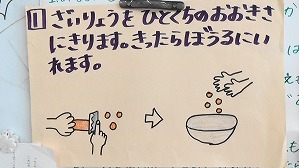 1 ざいりょうを ひとくちのおおきさ
にきります。きったらぼうるにい
れます。